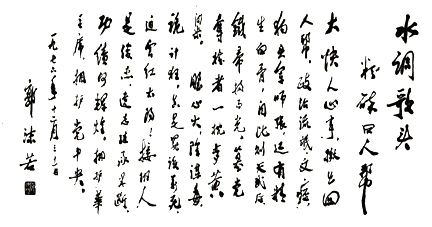 水调歌头
粉碎四人帮
大快人心事揪出四
人帮政治流氓文痞
狗头军师张还有精
生白骨自比则天武后
铁帚扫而光篡党
夺权者一枕梦黄
粱野心大阴谋毒
诡计狂真是罪该万死
迫害红太阳接班人
是俊杰遗志继承果断
功绩何辉煌拥护华
主席拥护党中央
一九七六年十二月
郭沫若